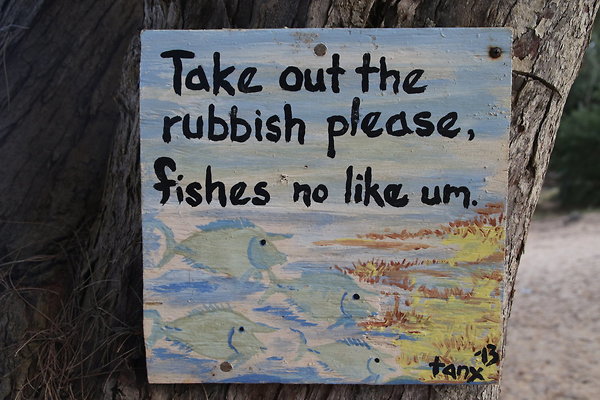 Take out the
rubbish please,
fishes no like um.
tanx '13